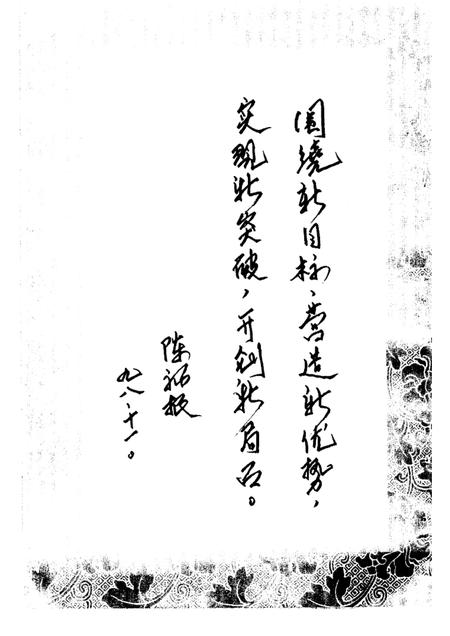 围绕新目标、营造新优势，
实现新突破，开创新局面。
陈祖根
九八.十一。